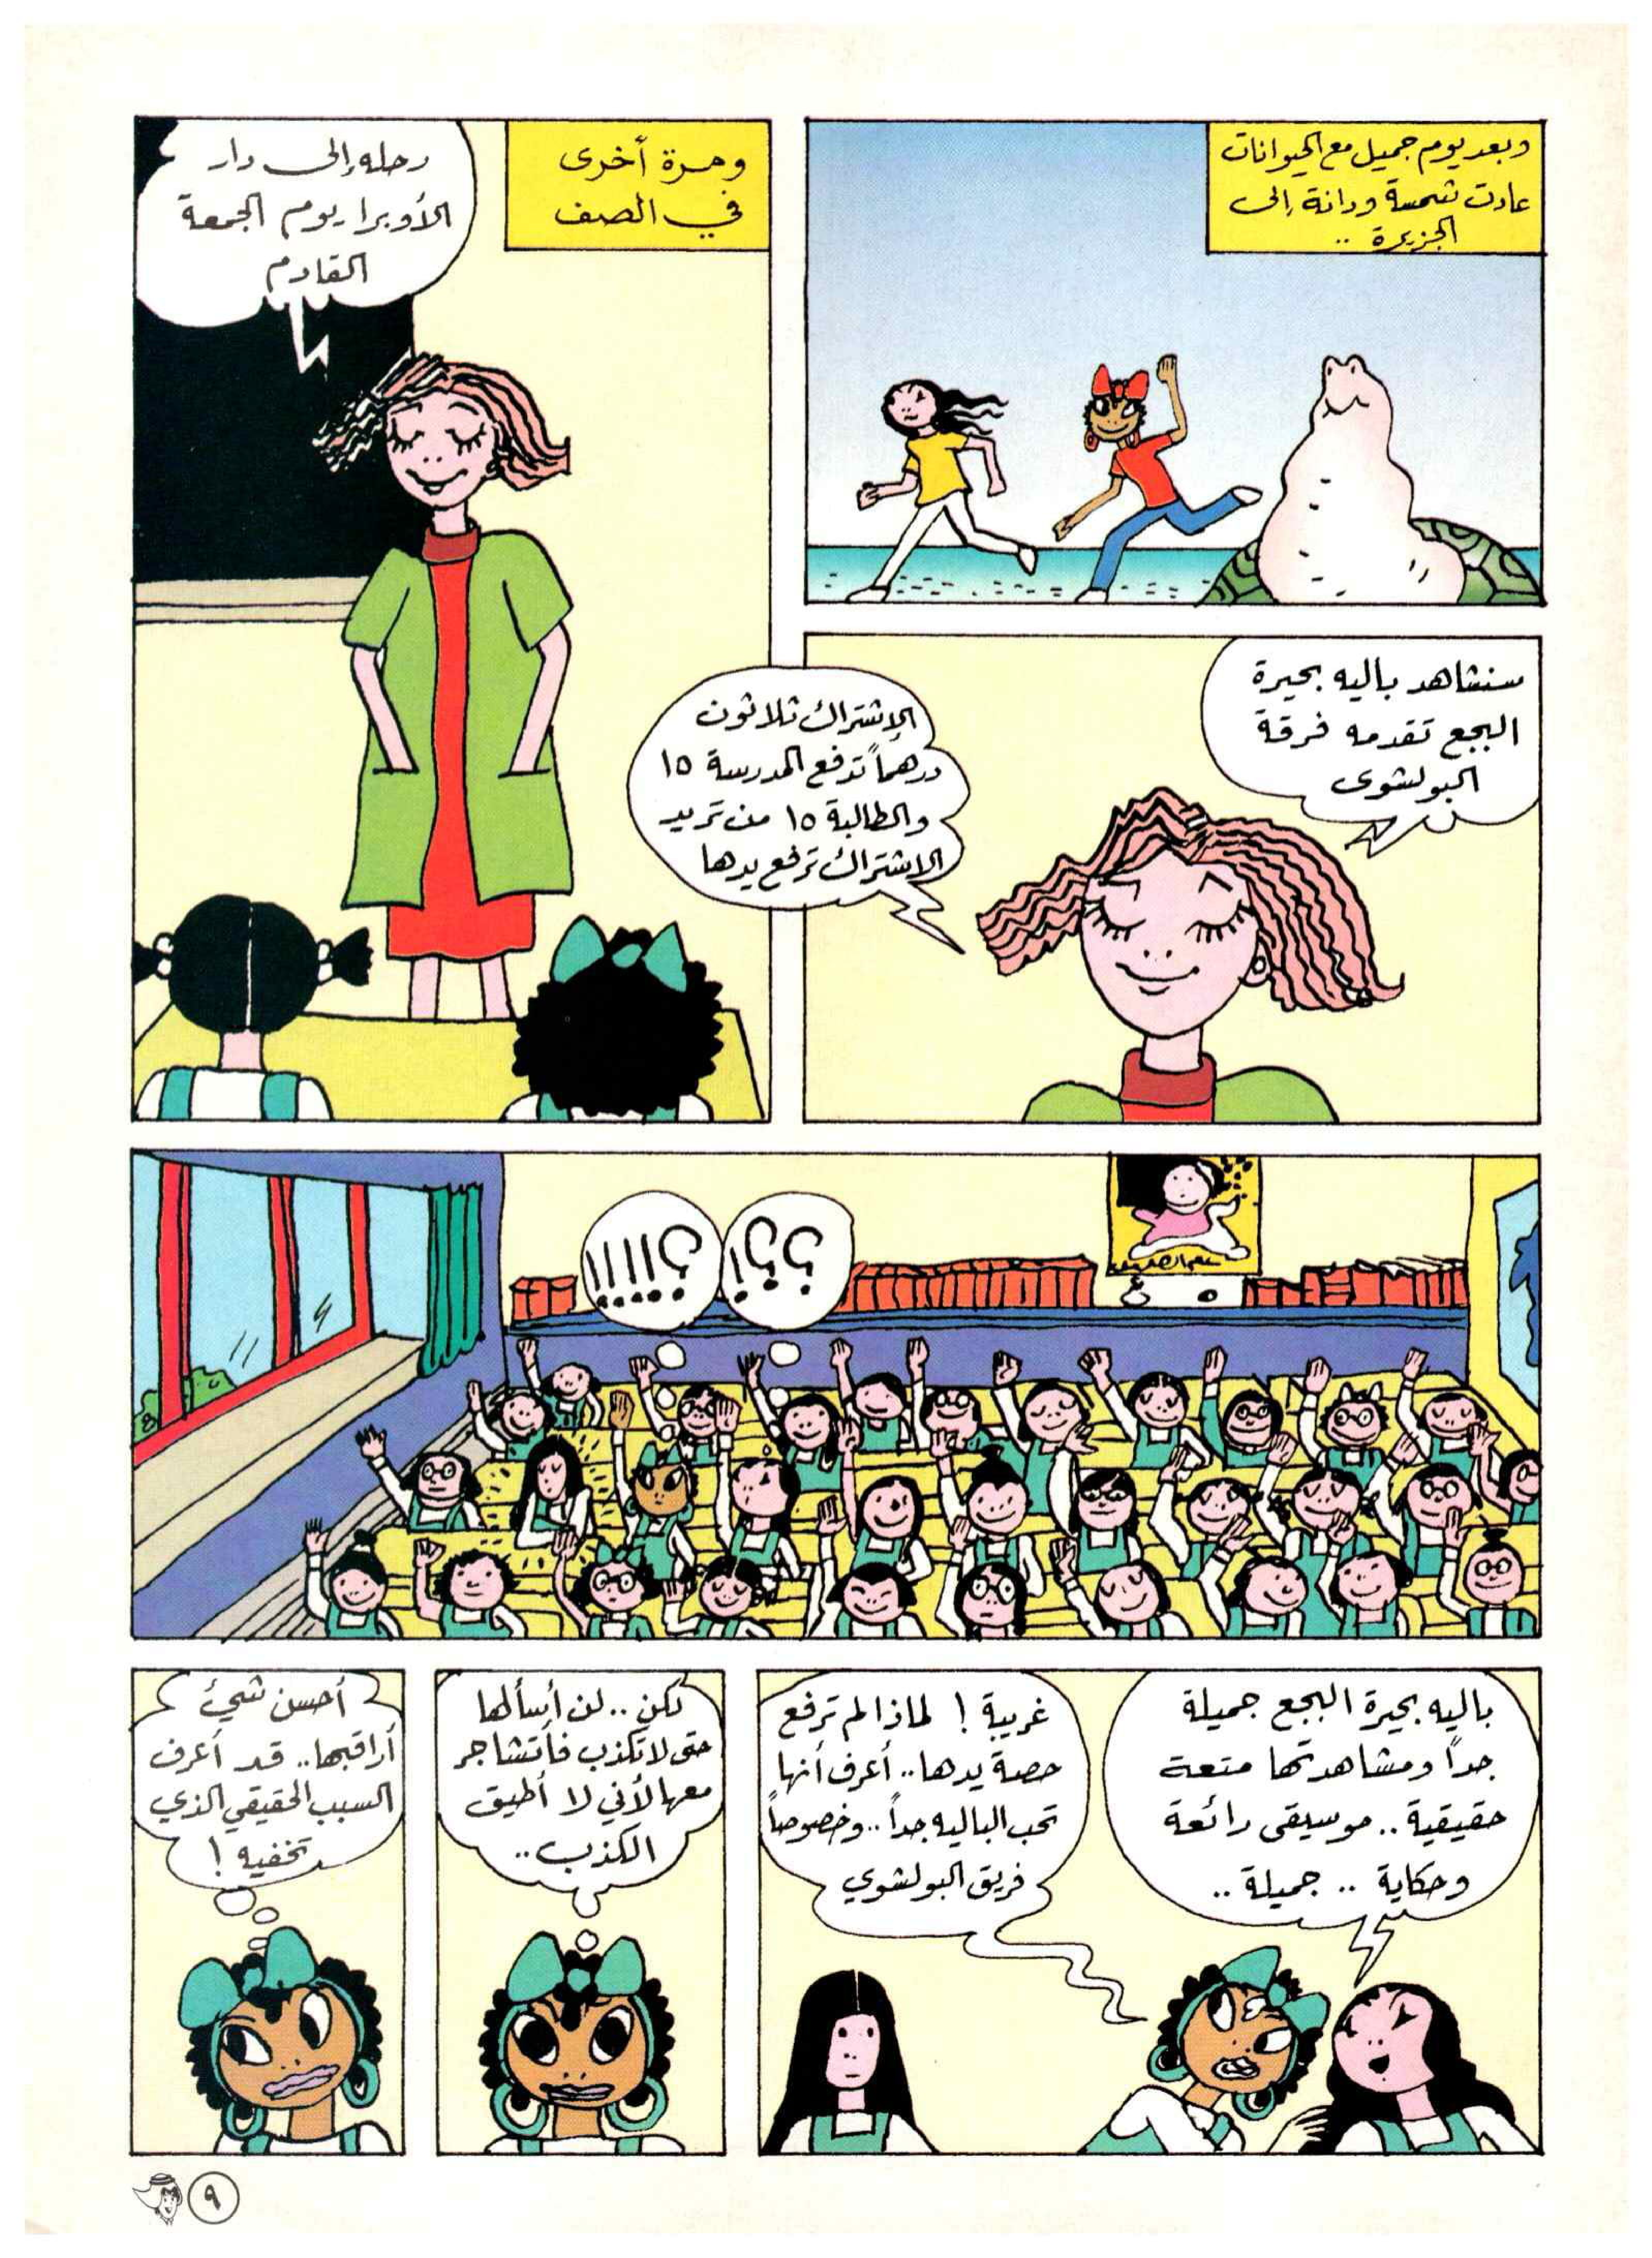 وبعد يوم جميل مع الحيوانات
عادت شمسة ودانة إلى
الجزيرة ..
ومرة أخرى
في الصف
رحله إلى دار
الأوبرا يوم الجمعة
القادم
سنشاهد باليه بحيرة
البجع تقدمه فرقة
البولشوى
الإشتراك ثلاثون
درهماً تدفع المدرسة ١٥
والطالبة ١٥ من تريد
الاشتراك ترفع يدها
؟؟!!
باليه بحيرة البجع جميلة
جداً ومشاهدتها متعة
حقيقية .. موسيقى رائعة
وحكاية .. جميلة ..
غريبة ! لماذا لم ترفع
حصة يدها .. أعرف أنها
تحب الباليه جداً .. وخصوصاً
فريق البولشوي
لكن .. لن أسألها
حتى لا تكذب فأتشاجر
معها لأني لا أطيق
الكذب ..
أحسن شيئ
أراقبها .. قد أعرف
السبب الحقيقي الذي
تخفيه !
٩